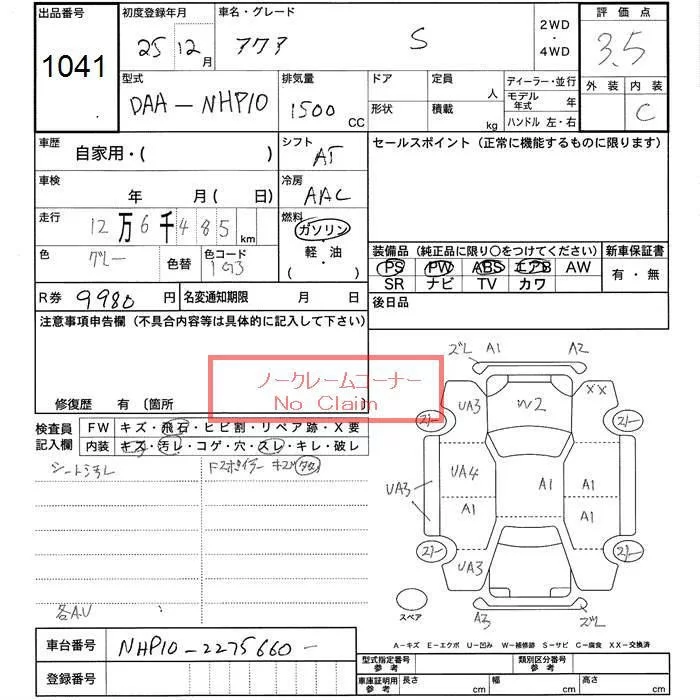 出品番号
1041
初度登録年月
25 12 月
車名・グレード
アクア S
2WD
・
4WD
評価点
3.5
外装 内装
C
型式
DAA-NHP10
排気量
1500 CC
ドア
形状
定員
人
積載
kg
ディーラー・並行
モデル年式 年
ハンドル 左・右
車歴
自家用・( )
シフト
AT
セールスポイント（正常に機能するものに限ります）
車検
年 月( 日)
冷房
AAC
走行
12万6千485 km
燃料
ガソリン
・
軽・油
( )
色
グレー
色替
色コード
1G3
装備品（純正品に限り○をつけてください）
PS PW ABS エアB AW
SR ナビ TV カワ
新車保証書
有・無
R券 9980 円
名変通知期限 月 日
後日品
注意事項申告欄（不具合内容等は具体的に記入して下さい）
ノークレームコーナー
No Claim
修復歴 有 〔箇所
検査員
記入欄
FW キズ・飛石・ヒビ割・リペア跡・X要
内装 キズ・汚レ・コゲ・穴・スレ・キレ・破レ
シート汚レ
各A.U
ズレ A1 A2
UA3 W2 XX
UA4 A1 A1
UA3
A1 A1
UA3
A3 ズレ
スペア
A-キズ E-エクボ U-凹み W-補修跡 S-サビ C-腐食 XX-交換済
車台番号 NHP10-2275660-
登録番号
型式指定番号
参考
類別区分番号
参考
車庫証明用
参考
長さ cm 幅 cm 高さ cm